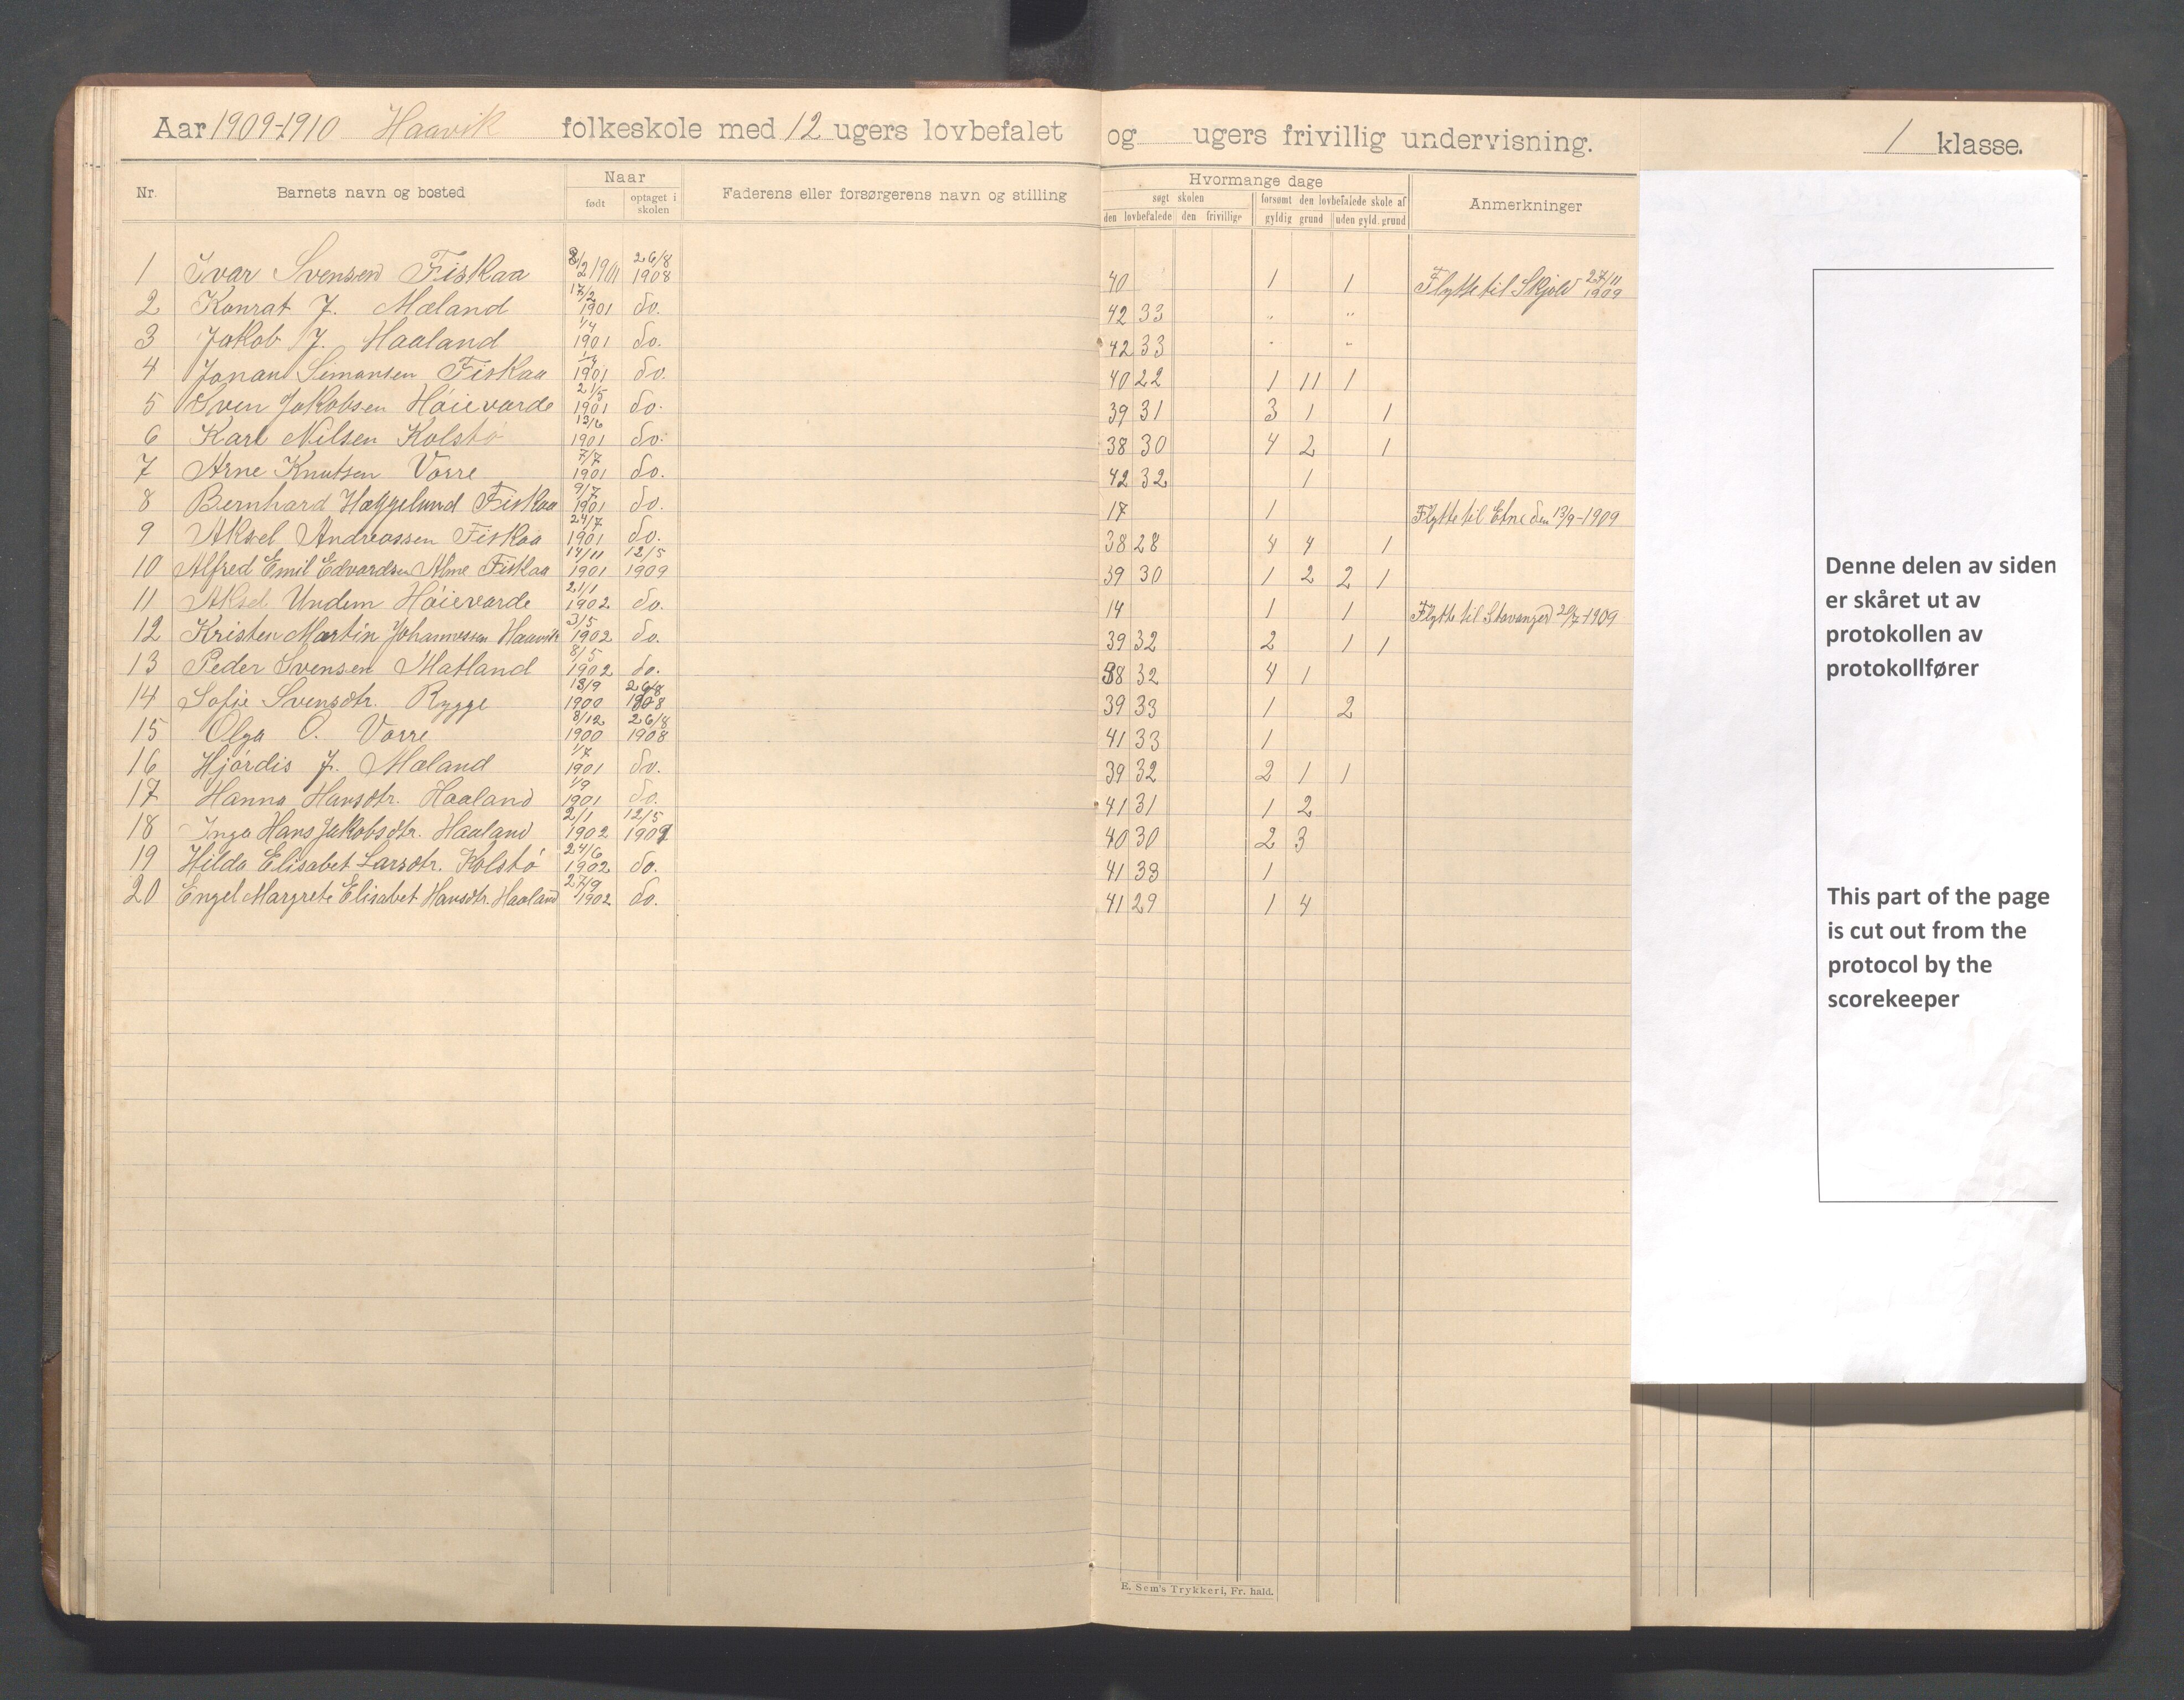 Aar 1909-1910 Haavik folkeskole med 12 ugers lovbefalet og ugers frivillig undervisning. 1 klasse.
Nr. Barnets navn og bosted Naar født optaget i skolen Faderens eller forsørgerens navn og stilling Hvormange dage søgt skolen den lovbefalede den frivillige forsømt den lovbefalede skole af gyldig grund uden gyld. grund Anmerkninger
1 Ivar Svensen Fiskaa 8/2 1901 26/8 1908 40 1 1 Flytte til Skjold 27/11 1909
2 Konrat J. Mæland 17/2 1901 do. 42 33 " "
3 Jakob J. Haaland 1/4 1901 do. 42 33 " "
4 Jonan Simonsen Fiskaa 1901 do. 40 22 1 11 1
5 Sven Jakobsen Høievarde 21/5 1901 do. 39 31 3 1 1
6 Karl Nilsen Kolstø 13/6 1901 do. 38 30 4 2 1
7 Arne Knutsen Vorre 7/7 1901 do. 42 32 1
8 Bernhard Hæggelund Fiskaa 9/7 1901 do. 17 1 Flytte til Etne den 13/9-1909
9 Aksel Andreassen Fiskaa 24/7 1901 do. 38 28 4 4 1
10 Alfred Emil Edvardsen Alme Fiskaa 14/11 1901 12/5 1909 39 30 1 2 2 1
11 Aksel Undem Høievarde 21/1 1902 do. 14 1 1 Flytte til Stavanger 20/7-1909
12 Kristen Martin Johannessen Haavik 3/5 1902 do. 39 32 2 1 1
13 Peder Svensen Matland 8/5 1902 do. 38 32 4 1
14 Sofie Svensdtr. Rygge 13/9 1900 26/8 1908 39 33 1 2
15 Olga O. Vorre 8/12 1900 26/8 1908 41 33 1
16 Hjørdis J. Mæland 1/7 1901 do. 39 32 2 1 1
17 Hanna Hansdtr. Haaland 1/9 1901 do. 41 31 1 2
18 Inga Hans Jakobsdtr. Haaland 2/1 1902 12/5 1909 40 30 2 3
19 Hilda Elisabet Larsdtr. Kolstø 24/6 1902 do. 41 33 1
20 Engel Margrete Elisabet Hansdtr. Haaland 27/9 1902 do. 41 29 1 4
E. Sem's Trykkeri, Fr. hald.
Denne delen av siden
er skåret ut av
protokollen av
protokollfører
This part of the page
is cut out from the
protocol by the
scorekeeper